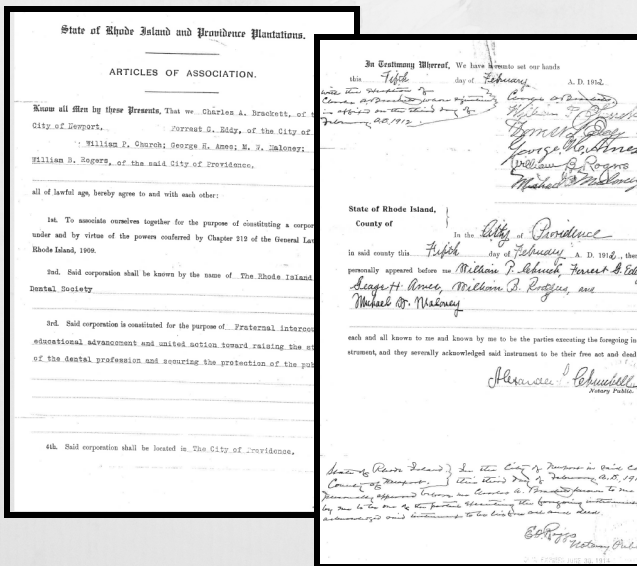 State of Rhode Island and Providence Plantations.
ARTICLES OF ASSOCIATION.
Know all Men by these Presents, That we Charles A. Brackett, of t
City of Newport, Forrest G. Eddy, of the City of
William P. Church; George H. Ames; M. W. Maloney;
William B. Rogers, of the said City of Providence.
all of lawful age, hereby agree to and with each other:
1st. To associate ourselves together for the purpose of constituting a corpor
under and by virtue of the powers conferred by Chapter 212 of the General La
Rhode Island, 1909.
2nd. Said corporation shall be known by the name of The Rhode Island
Dental Society
3rd. Said corporation is constituted for the purpose of Fraternal interco
educational advancement and united action toward raising the st
of the dental profession and securing the protection of the pub
4th. Said corporation shall be located in The City of Providence.
In Testimony Whereof, We have hereunto set our hands
this Fifth day of February A. D. 1912
with the exception of
Charles A. Brackett whose signature
is affixed on the third day of
February A.D. 1912.
Charles A. Brackett
William P. Church
Forrest G. Eddy
George H. Ames
William B. Rogers
Michael W. Maloney
State of Rhode Island,
County of
In the City of Providence
in said county this Fifth day of February A. D. 1912, then
personally appeared before me William P. Church, Forrest G. Eddy
George H. Ames, William B. Rodgers, and
Michael W. Maloney
each and all known to me and known by me to be the parties executing the foregoing in
strument, and they severally acknowledged said instrument to be their free act and deed
Alexander Churchill
Notary Public.
State of Rhode Island } In the City of Newport in said Co
County of Newport. this third day of February A.D. 191
Personally appeared before me Charles A. Brackett known to me
by me to be one of the parties executing the foregoing instrument
acknowledged said instrument to be his free act and deed.
Notary Public